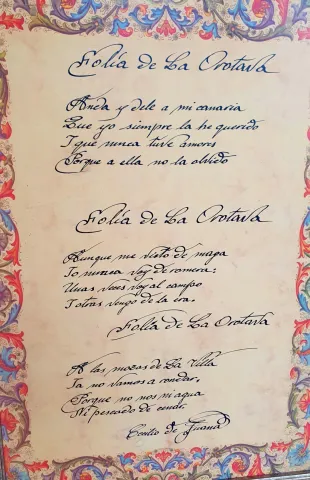 Folía de La Orotava
Anda y dile a mi canaria
Que yo siempre la he querido
Y que nunca tuve amores
Porque a ella no la olvido
Folía de La Orotava
Aunque me visto de maga
Yo nunca soy de romera:
Unas veces voy al campo
Y otras vengo de la era.
Folía de La Orotava
A las mozas de La Villa
Ya no vamos a rondar,
Porque no nos
Ni pescado de
de